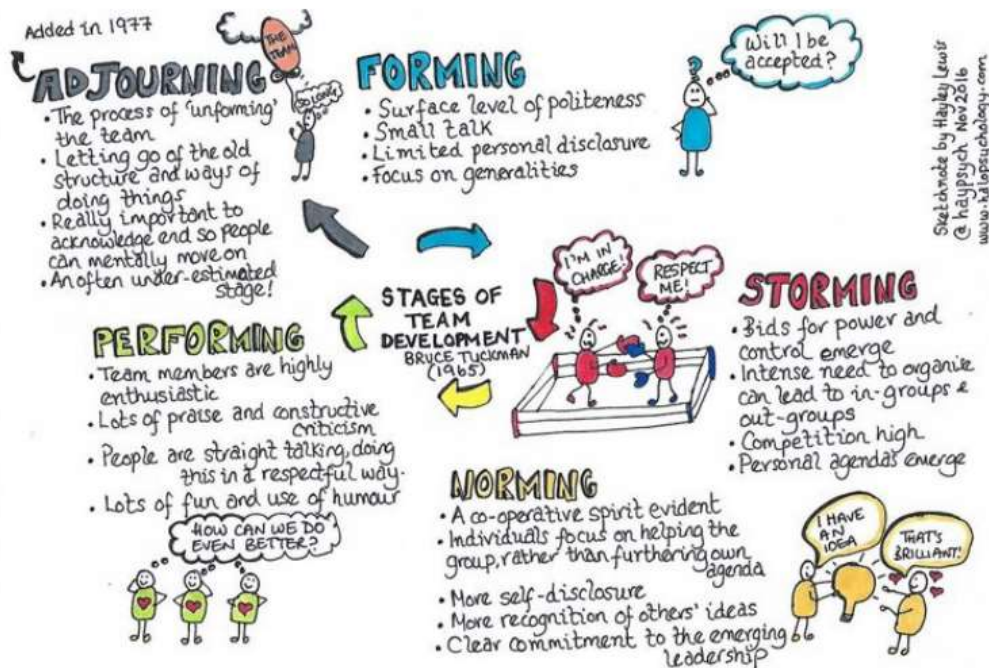 Added in 1977
ADJOURNING
• The process of 'unforming'
the team
• Letting go of the old
structure and ways of
doing things
• Really important to
acknowledge end so people
can mentally move on
• An often under-estimated
stage!
THE
TEAM
SO LONG!
FORMING
• Surface level of politeness
• Small talk
• Limited personal disclosure
• Focus on generalities
?
Will I be
accepted?
Sketchnote by Hayley Lewis
@haypsych Nov 2016
www.halopsychology.com
STAGES OF
TEAM
DEVELOPMENT
BRUCE TUCKMAN
(1965)
I'M IN
CHARGE!
RESPECT
ME!
STORMING
• Bids for power and
control emerge
• Intense need to organise
can lead to in-groups &
out-groups
• Competition high
• Personal agendas emerge
PERFORMING
• Team members are highly
enthusiastic
• Lots of praise and constructive
criticism
• People are straight talking, doing
this in a respectful way.
• Lots of fun and use of humour
HOW CAN WE DO
EVEN BETTER?
NORMING
• A co-operative spirit evident
• Individuals focus on helping the
group, rather than furthering own
agenda
• More self-disclosure
• More recognition of others' ideas
• Clear commitment to the emerging
leadership
I HAVE
AN
IDEA
THAT'S
BRILLIANT!